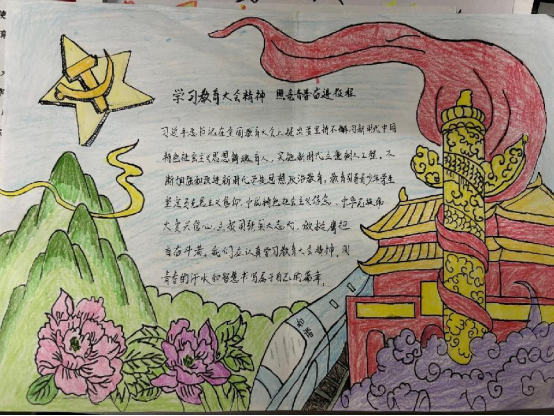 学习教育大会精神 照亮青春奋进征程
习近平总书记在全国教育大会上提出要坚持不懈用新时代中国
特色社会主义思想铸魂育人，实施新时代立德树人工程，不
断加强和改进新时代学校思想政治教育，教育引导青少年学生
坚定马克思主义信仰、中国特色社会主义信念、中华民族伟
大复兴信心，立报国强国大志向、做挺膺担
当奋斗者。我们应认真学习教育大会精神，用
青春的汗水和智慧书写属于自己的篇章。